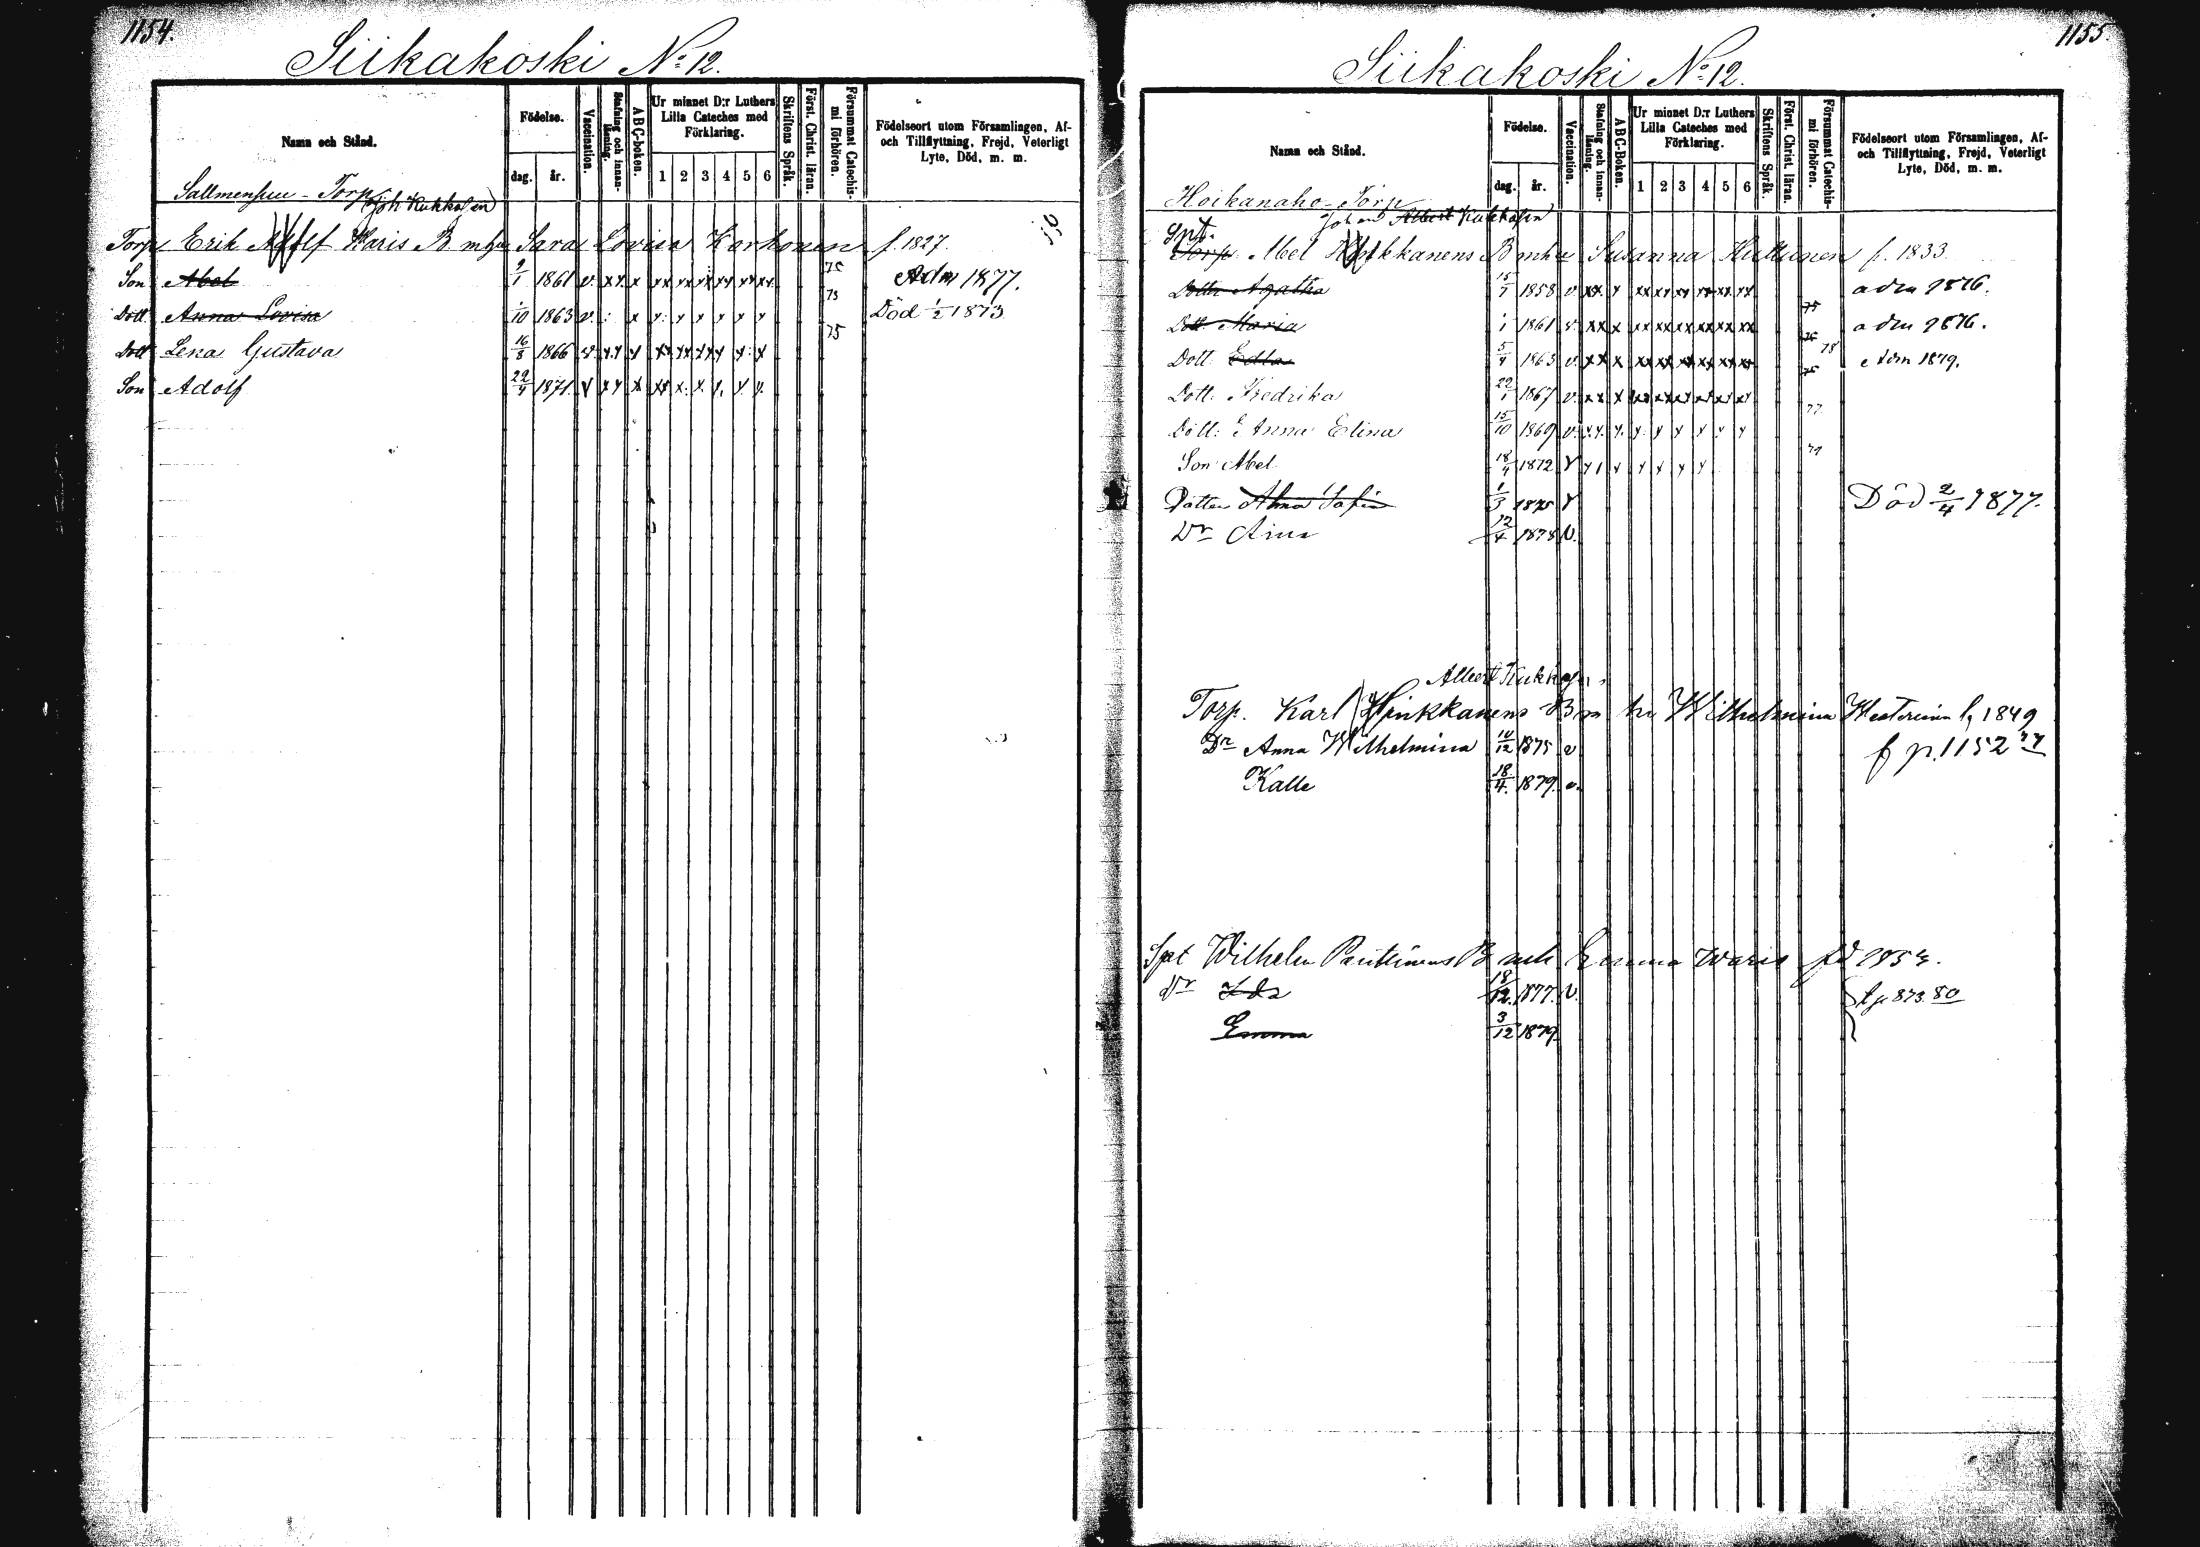 1154.
Siikakoski No 12.
Namn och Stånd.
Födelse.
dag. år.
Vaccination.
Stafning och innanläsning.
ABC-boken.
Ur minnet D:r Luthers Lilla Cateches med Förklaring.
1 2 3 4 5 6
Skriftens Språk.
Först. Christ. läran.
Försummat Catechismi förhören.
Födelseort utom Församlingen, Af- och Tillflyttning, Frejd, Veterligt Lyte, Död, m. m.
Sallmensuu - Torp
Joh Kukkosen
Torp. Erik Adolf Waris B mhu Sara Lovisa Korhonen f. 1827.
Son Abel 9/1 1861 v. xx x xx xx xx xx xx xx 75 Adm 1877.
Dott. Anna Lovisa 1/10 1863 v. x x x x x x x 73 Död 1/2 1873
Dott Lena Gustava 16/8 1866 v xx x xx xx xx x x x 75
Son Adolf 22/4 1871. v xx x xx x. x. x. x. x.
1155.
Siikakoski No 12.
Namn och Stånd.
Födelse.
dag. år.
Vaccination.
Stafning och innanläsning.
ABC-Boken.
Ur minnet D:r Luthers Lilla Cateches med Förklaring.
1 2 3 4 5 6
Skriftens Språk.
Först. Christ. läran.
Försummat Catechismi förhören.
Födelseort utom Församlingen, Af- och Tillflyttning, Frejd, Veterligt Lyte, Död, m. m.
Hoikanaho - Torp
Johan Albert Kukkosen
Spt.
Torp. Abel Hinkkanens B mhu Susanna Huttunen f. 1833.
Dottr Agatha 15/7 1858 v xx x xx xx xx xx xx xx adm 1876.
Dott Maria 1861 v. xx x xx xx xx xx xx xx 75 adm 1876.
Dott. Edla 5/4 1863 v. xx x xx xx xx xx xx xx 78 Adm 1879.
Dott. Fredrika 22/1 1867 v. xx x xx xx xx xx xx xx
Dott: Anna Elina 15/10 1869 v. x.x. x. x x x x x x 77.
Son Abel 18/4 1872 v x x x x x x
Dotter Alma Sofia 1/3 1875 v Död 2/4 1877.
Dr Aina 12/4 1878 v.
Albert Kukkosen
Torp. Karl Hinkkanens B m hu Wilhelmina Westerinen f. 1849
Dr Anna Wilhelmina 10/12 1875 v f p. 1152 77
Kalle 18/4. 1879. v.
Spt Wilhelm Pautiainens B mh Emma Waris fd 1854.
Dr Ida 18/12. 1877. v. t p 873 80
Emma 3/12 1879.